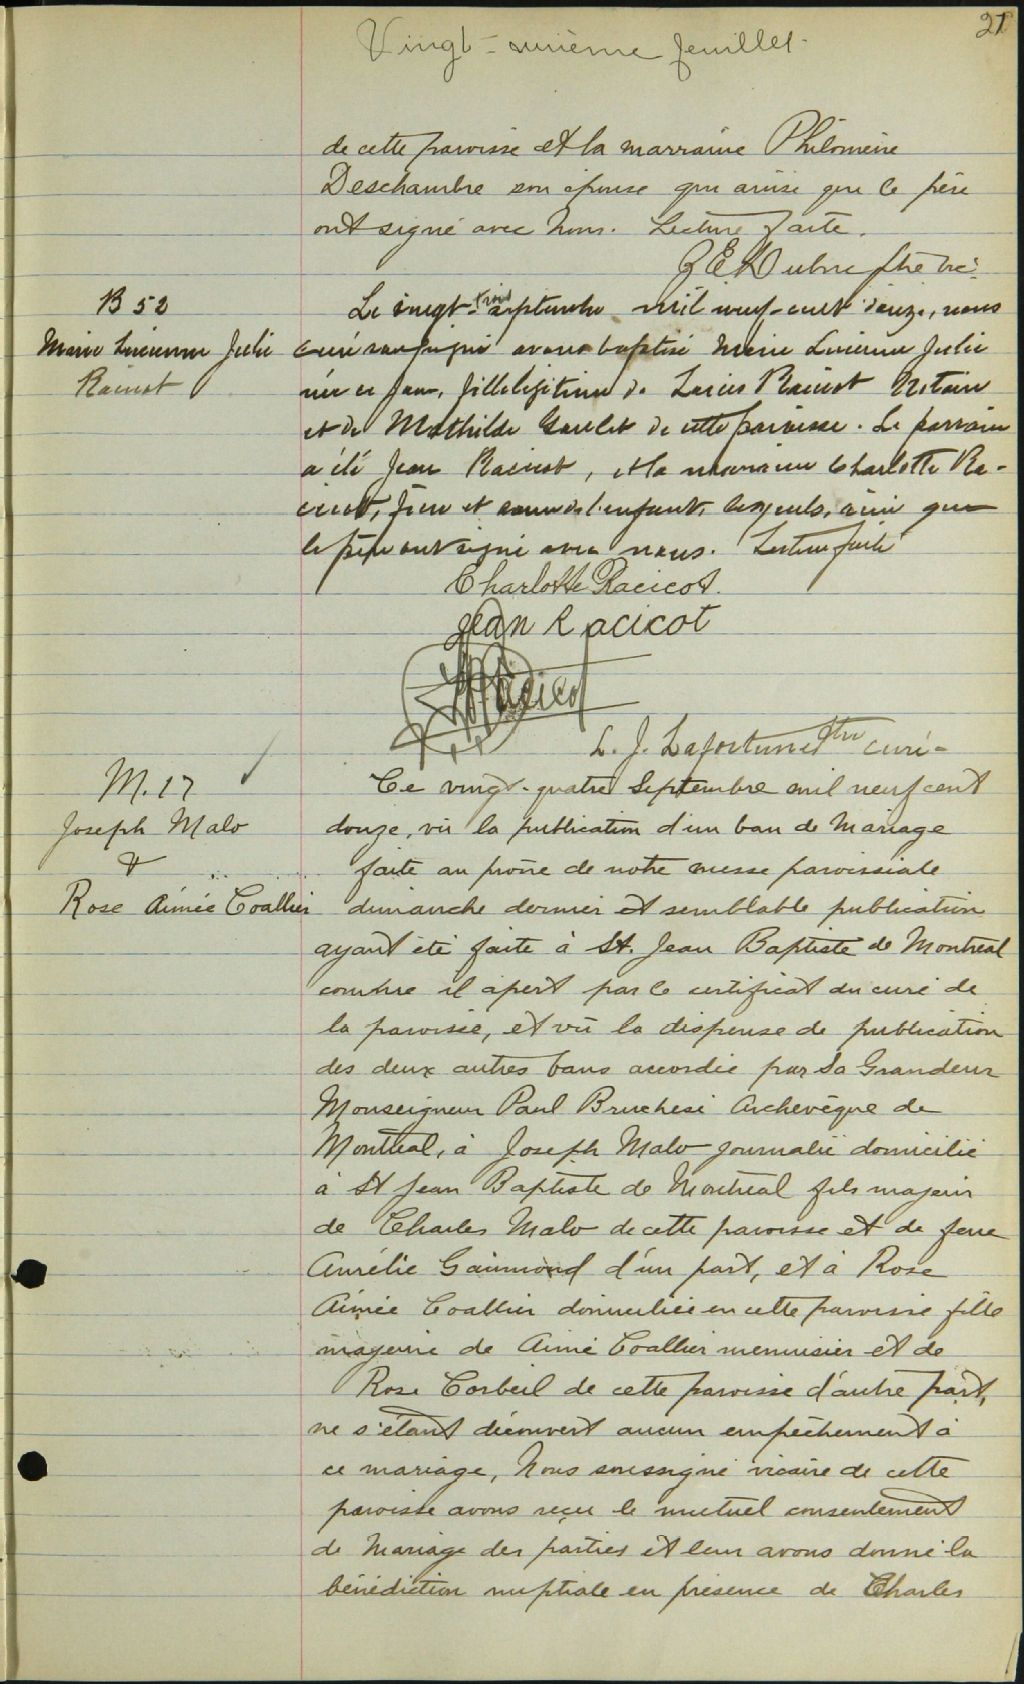 21
Vingt-unième feuillet.
de cette paroisse et la marraine Philomène
Deschambre son épouse qui ainsi que le père
ont signé avec nous. Lecture faite.
ptre vic.
B 52
Marie Lucienne Julie
Racicot
Le vingt-trois septembre mil neuf-cent douze, nous
curé soussigné avons baptisé Marie Lucienne Julie
née ce jour, fille légitime de Racicot Notaire
et de Mathilde Goulet de cette paroisse. Le parrain
a été Jean Racicot, et la marraine Charlotte Ra-
cicot, frère et soeur de l'enfant, lesquels, ainsi que
le père ont signé avec nous. Lecture faite
Charlotte Racicot.
Jean Racicot
Racicot
L. J. Lafortune Ptre curé-
M. 17
Joseph Malo
&
Rose Aimée Coallier
Ce vingt-quatre Septembre mil neuf cent
douze, vu la publication d'un ban de Mariage
faite au prône de notre messe paroissiale
dimanche dernier et semblable publication
ayant été faite à St. Jean Baptiste de Montréal
comme il apert par le certificat du curé de
la paroisse, et vu la dispense de publication
des deux autres bans accordée par Sa Grandeur
Monseigneur Paul Bruchesi Archevêque de
Montréal, à Joseph Malo journalier domicilié
à St Jean Baptiste de Montréal fils majeur
de Charles Malo de cette paroisse et de feue
Aurélie d'un part, et à Rose
Aimée Coallier domiciliée en cette paroisse fille
majeure de Aimé Coallier menuisier et de
Rose Corbeil de cette paroisse d'autre part,
ne s'étant découvert aucun empêchement à
ce mariage, Nous soussigné vicaire de cette
paroisse avons reçu le mutuel consentement
de Mariage des parties et leur avons donné la
bénédiction nuptiale en présence de Charles